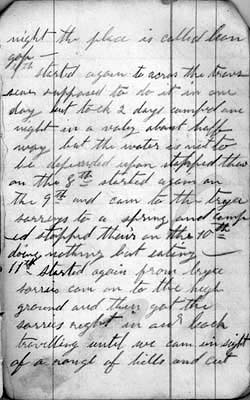 night the place is called bean
gap —
7th started again to across the
seas supposed to do it in one
day but took 2 days camped one
night in a valey about half
way but the water is not to
be depended upon stopped their
on the 8th started again on
the 9th and cam to the
to a spring and camp
ed stopped their on the 10th
doing nothing but eating —
11th started again from
cam on to the high
ground and then got the
right in our back
travelling until we cam in sight
of a range of hills and cut